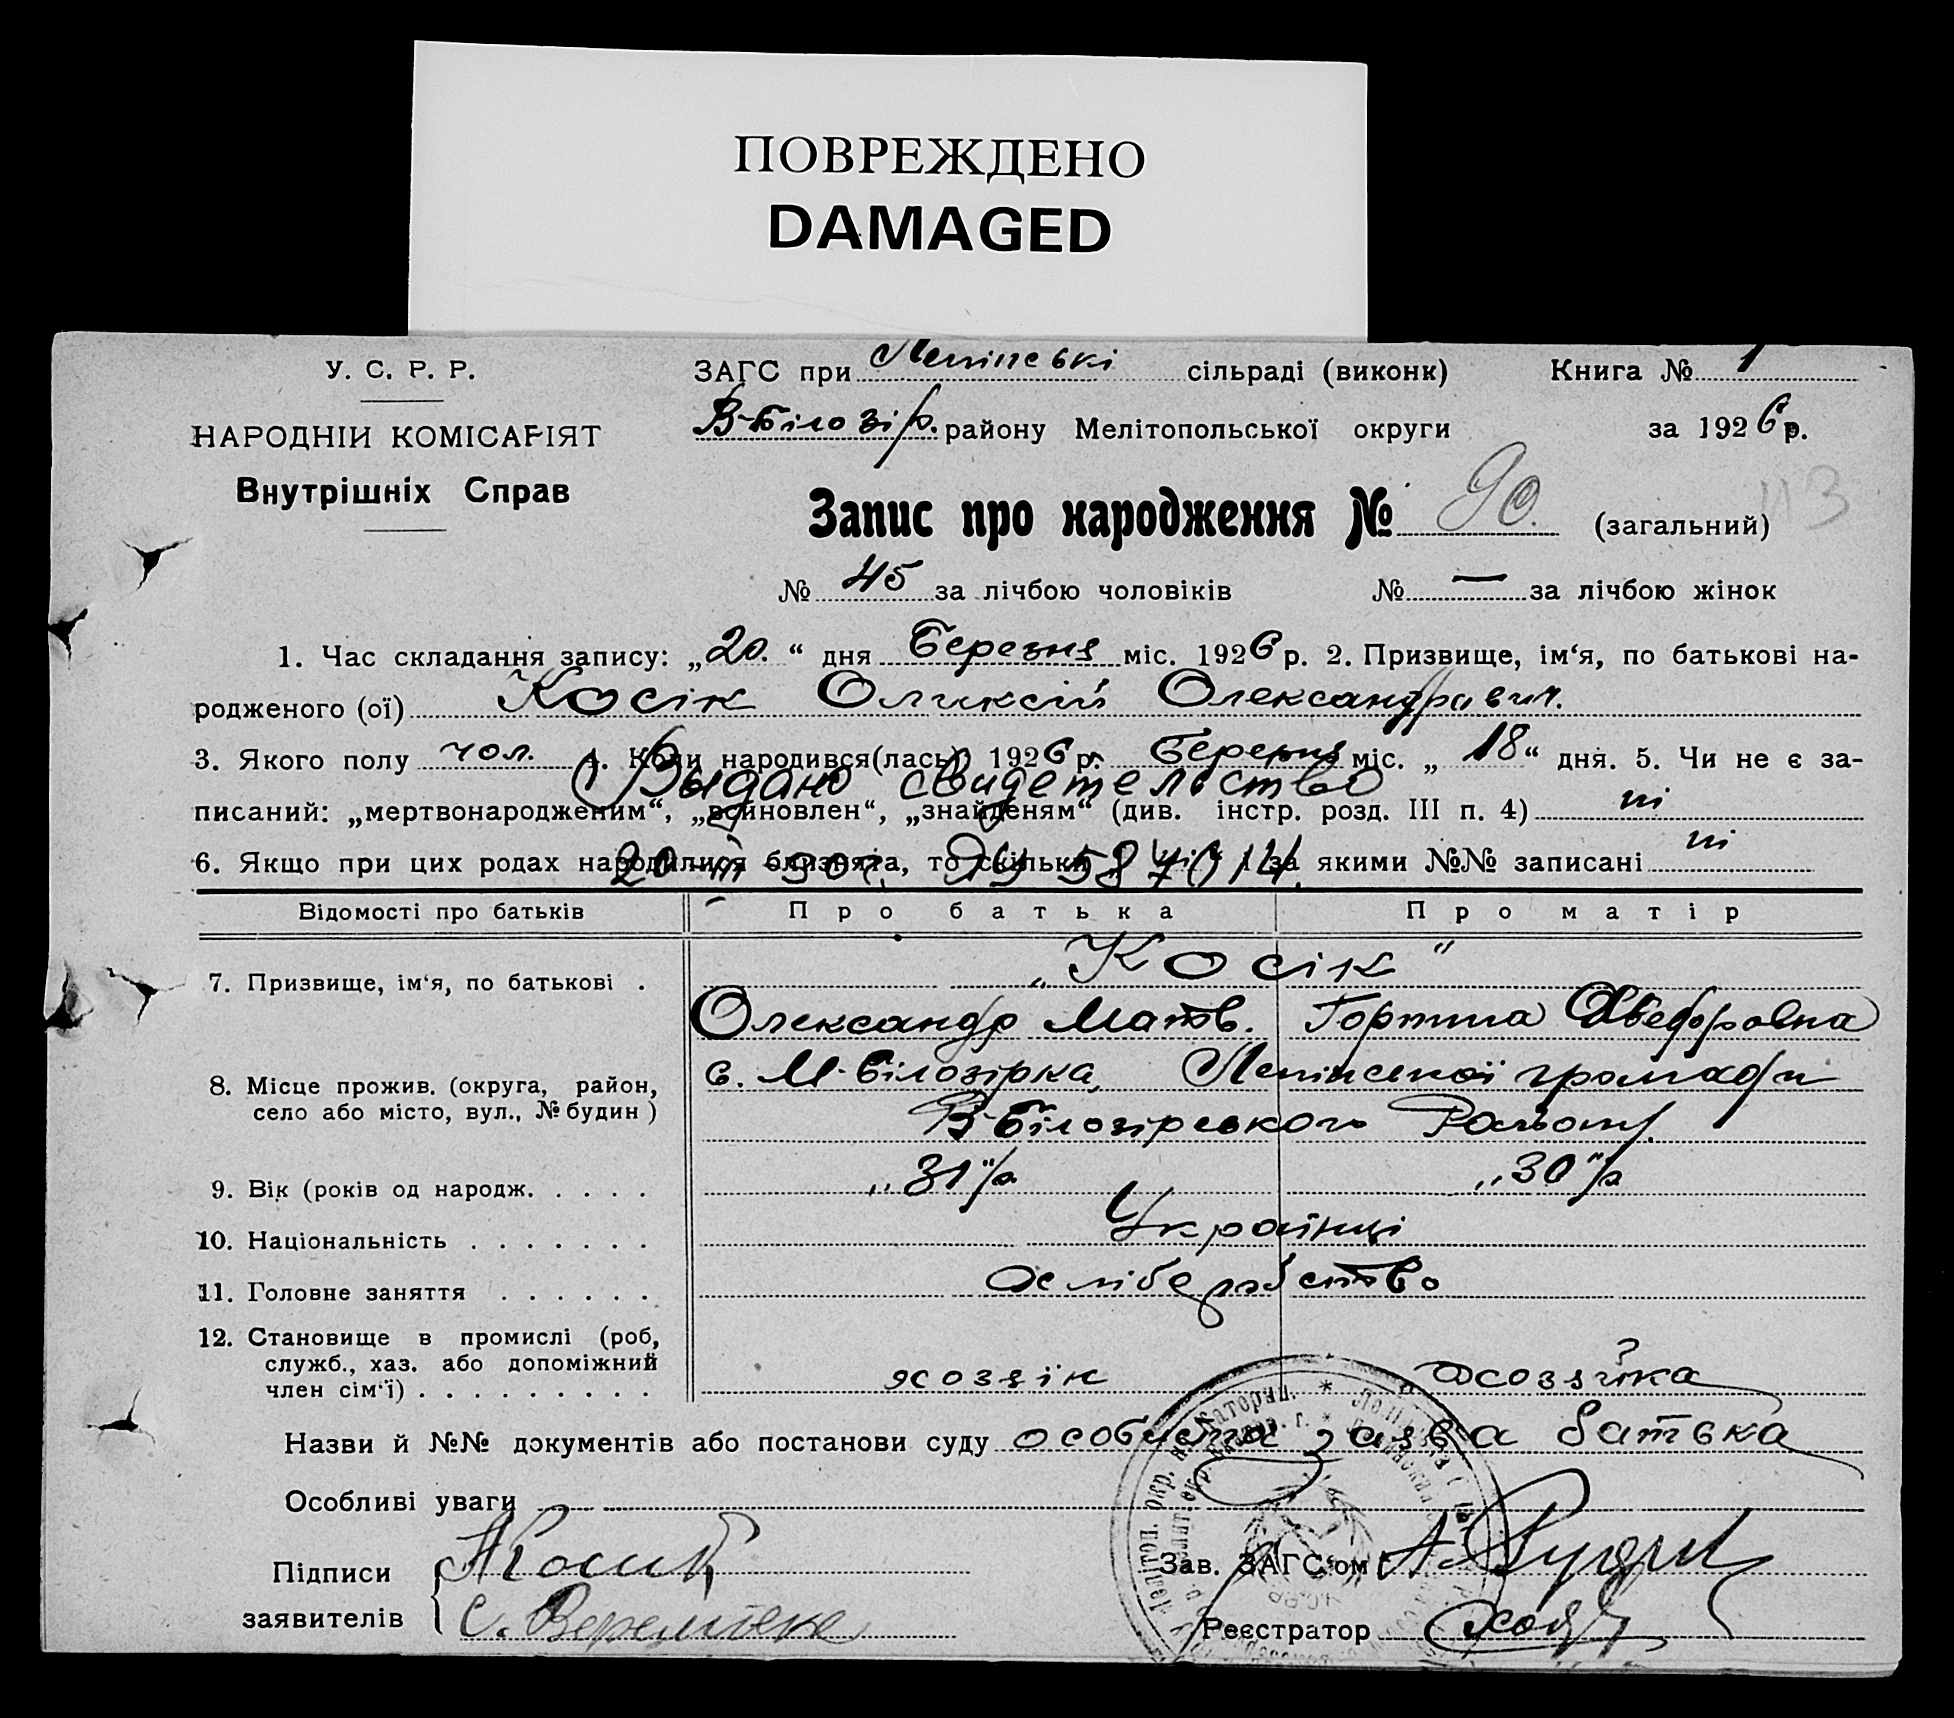 ПОВРЕЖДЕНО
DAMAGED
У. С. Р. Р.
НАРОДНІЙ КОМІСАРІЯТ
Внутрішніх Справ
ЗАГС при Ленінські сільраді (виконк) Книга № 1
В-Білозір. району Мелітопольської округи за 1926 р.
Запис про народження № 90. (загальний) 113
№ 45 за лічбою чоловіків № — за лічбою жінок
1. Час складання запису: „20.“ дня Березня міс. 1926 р. 2. Призвище, ім‘я, по батькові на-
родженого (ої) Косік Оликсій Олександрович.
3. Якого полу чол. 4. Коли народився(лась) 1926 р. Березня міс. „18“ дня. 5. Чи не є за-
Выдано свидетельство
писаний: „мертвонародженим“, „всиновлен“, „знайденям“ (див. інстр. розд. III п. 4) ні
6. Якщо при цих родах народилися близнята, то скільки і за якими №№ записані ні
Відомості про батьків Про батька Про матір
7. Призвище, ім‘я, по батькові . „Косік“
Олександр Матв. Горпина Хведоровна
8. Місце прожив. (округа, район, село або місто, вул., № будин) с. М-Білозірка, Ленінської громади
В-Білозірського Району.
9. Вік (років од народж. . . . . „31“ р. „30“ р.
10. Національність . . . . . . . Українці
11. Головне заняття . . . . . . Хліборобство
12. Становище в промислі (роб,
служб., хаз. або допоміжний
член сім‘ї) . . . . . . . . . . хозяїн хозяйка
Назви й №№ документів або постанови суду особиста заява батька
Особливі уваги
Підписи Косик Зав. ЗАГС‘ом
заявителів С. Веремієнко Реєстратор